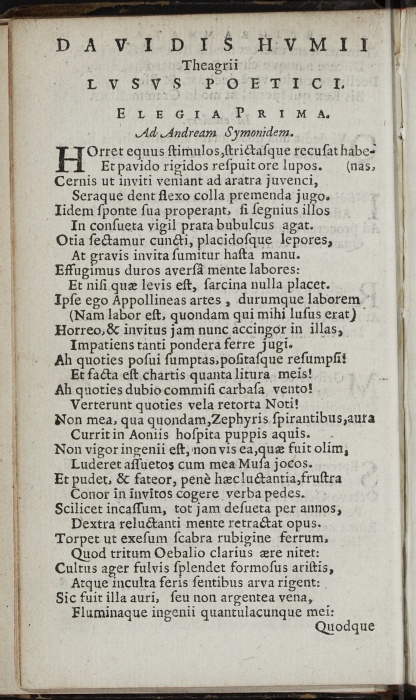 DAVIDIS HVMII
Theagrii
LVSVS POETICI.
ELEGIA PRIMA.
Ad Andream Symonidem.
HOrret equus ſtimulos, ſtrictaſque recuſat habe-
Et pavido rigidos reſpuit ore lupos. (nas,
Cernis ut inviti veniant ad aratra juvenci,
Seraque dent flexo colla premenda jugo.
Iidem ſponte ſua properant, ſi ſegnius illos
In conſueta vigil prata bubulcus agat.
Otia ſectamur cuncti, placidoſque lepores,
At gravis invita ſumitur haſta manu.
Effugimus duros averſâ mente labores:
Et niſi quæ levis eſt, ſarcina nulla placet.
Ipſe ego Appollineas artes, durumque laborem
(Nam labor eſt, quondam qui mihi luſus erat)
Horreo, & invitus jam nunc accingor in illas,
Impatiens tanti pondera ferre jugi.
Ah quoties poſui ſumptas, poſitaſque reſumpſi!
Et facta eſt chartis quanta litura meis!
Ah quoties dubio commiſi carbaſa vento!
Verterunt quoties vela retorta Noti!
Non mea, qua quondam, Zephyris ſpirantibus, aura
Currit in Aoniis hoſpita puppis aquis.
Non vigor ingenii eſt, non vis ea, quæ fuit olim,
Luderet aſſuetos cum mea Muſa jocos.
Et pudet, & fateor, penè hæc luctantia, fruſtra
Conor in invitos cogere verba pedes.
Scilicet incaſſum, tot jam deſueta per annos,
Dextra reluctanti mente retractat opus.
Torpet ut exeſum ſcabra rubigine ferrum,
Quod tritum Oebalio clarius ære nitet:
Cultus ager fulvis ſplendet formoſus ariſtis,
Atque inculta feris ſentibus arva rigent:
Sic fuit illa auri, ſeu non argentea vena,
Fluminaque ingenii quantulacunque mei:
Quodque